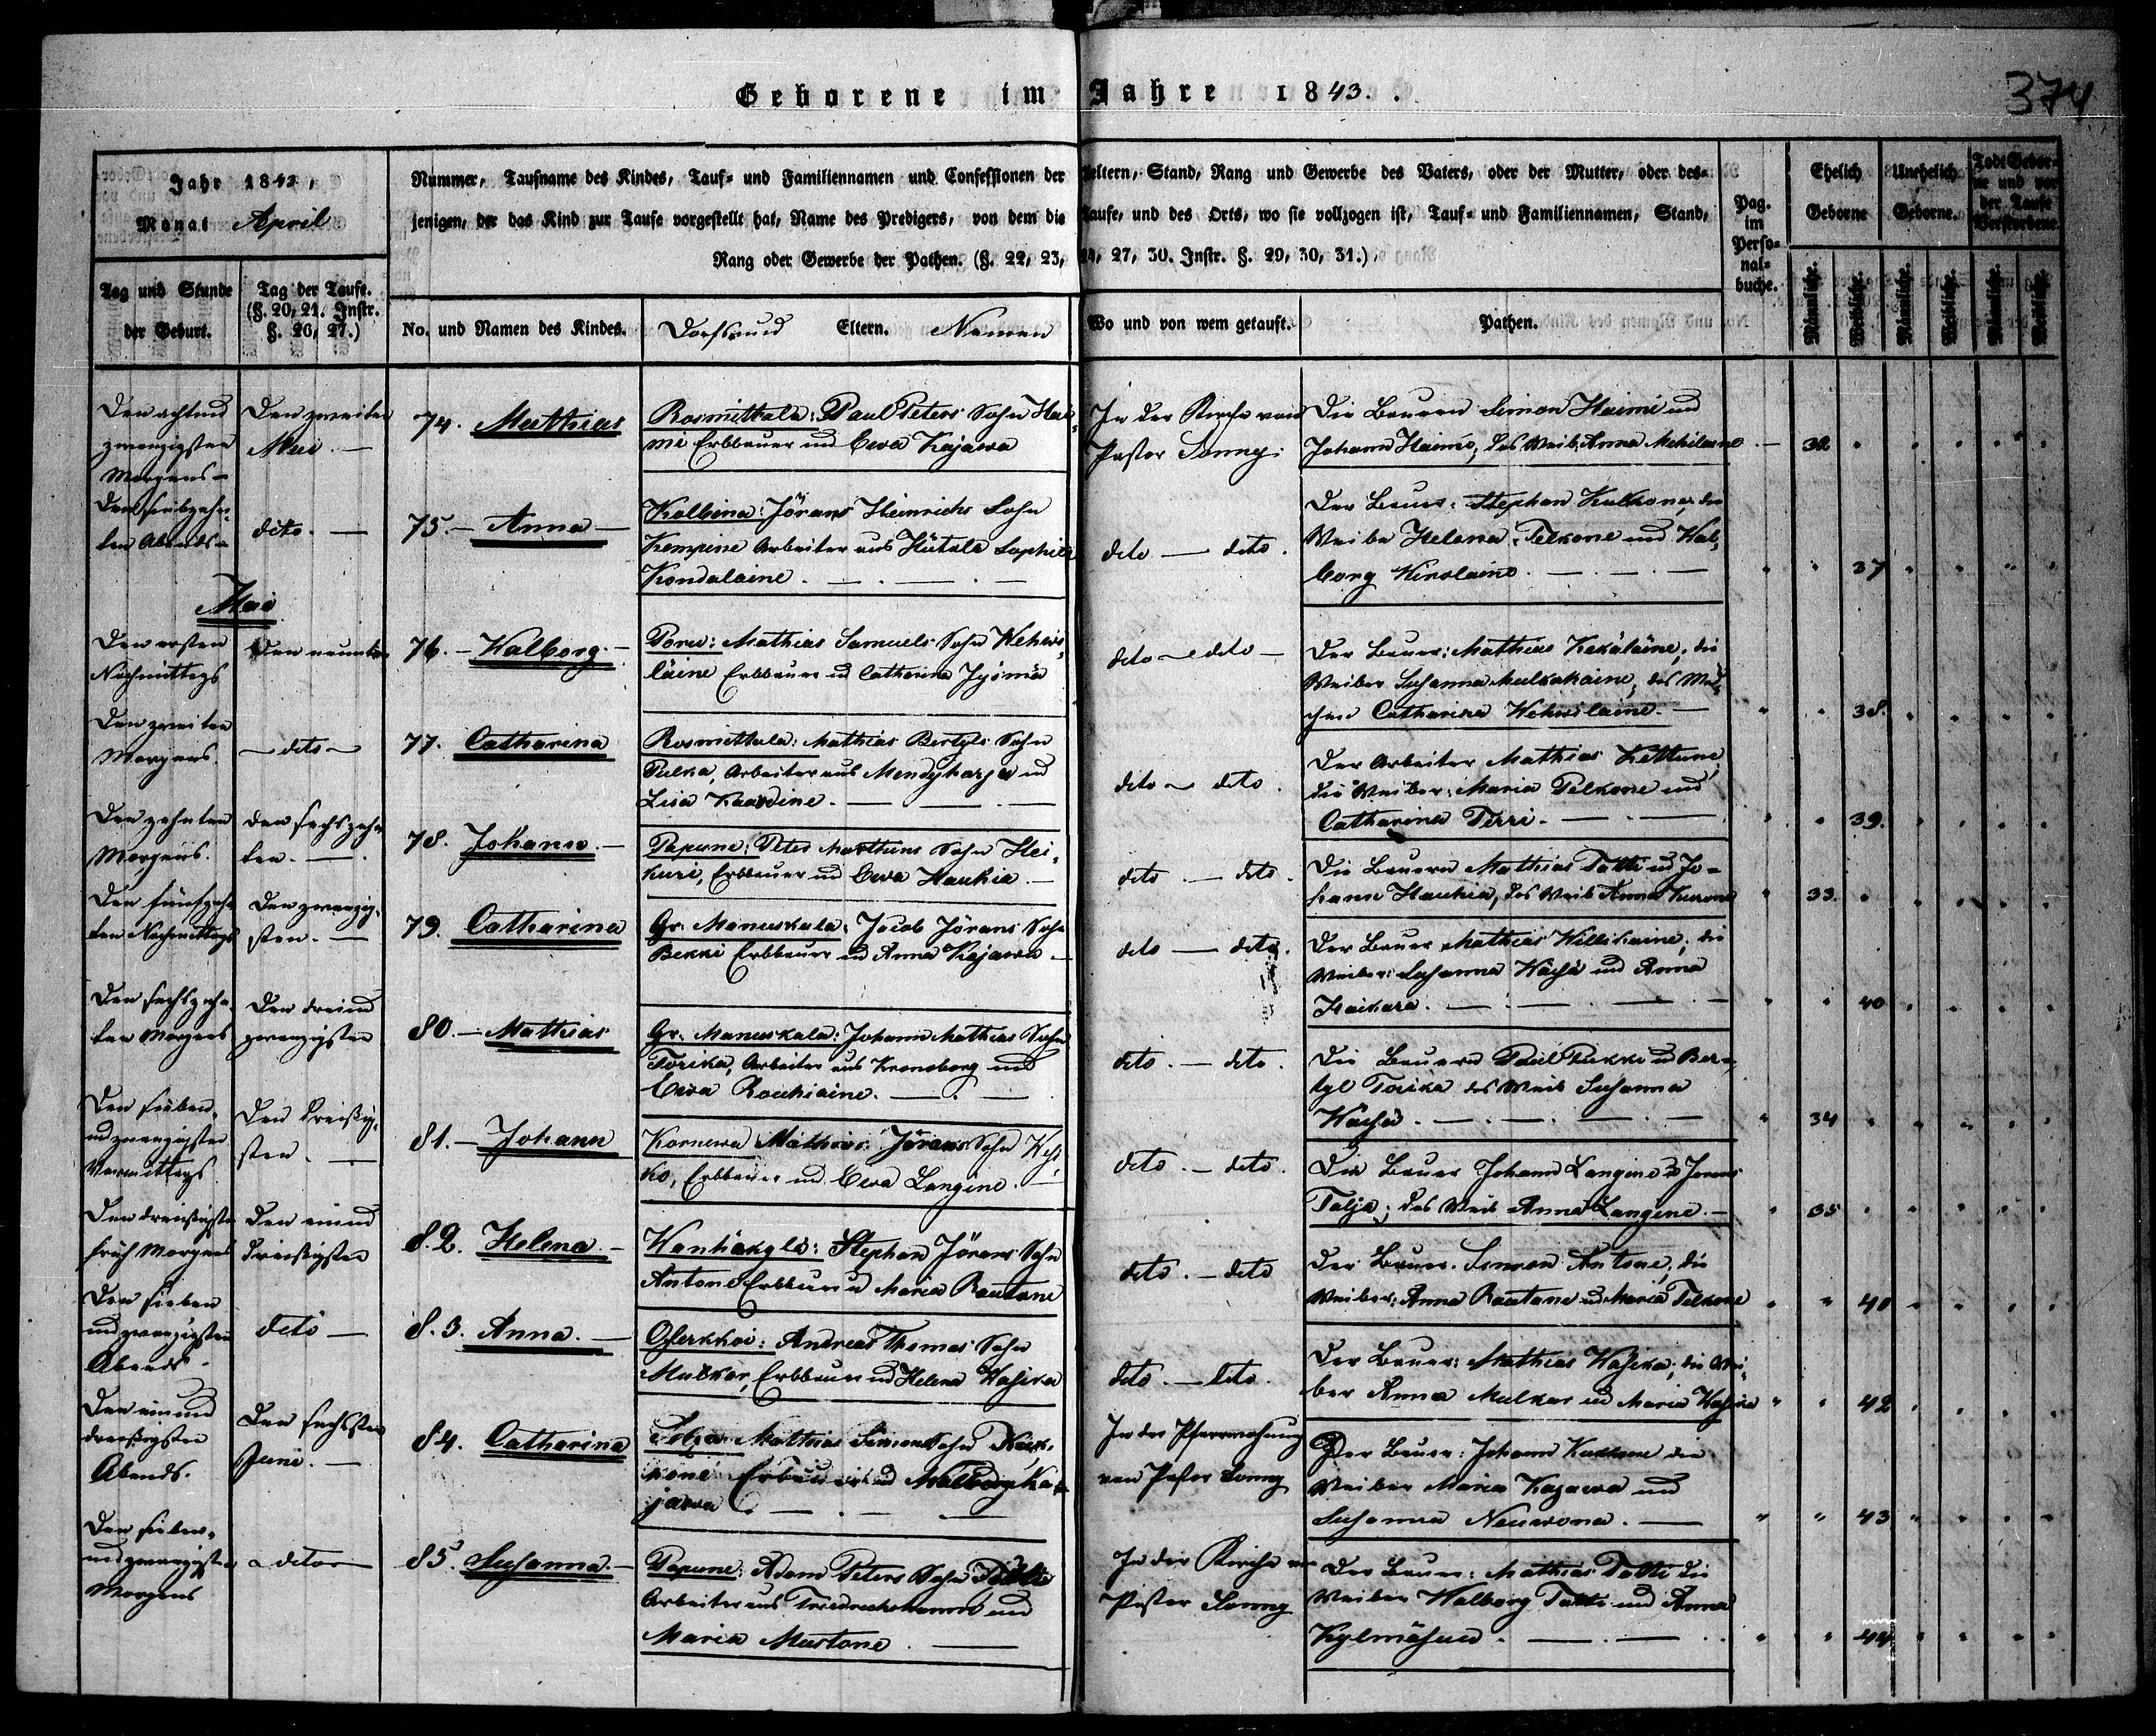 Geborene im Jahre 1843.
374
Jahr 1843,
Monat April
Tag und Stunde der Geburt.
Tag der Taufe. (§. 20, 21. Instr. §. 26, 27.)
Nummer, Taufname des Kindes, Tauf- und Familiennamen und Confessionen der Aeltern, Stand, Rang und Gewerbe des Vaters, oder der Mutter, oder des-
jenigen, der das Kind zur Taufe vorgestellt hat, Name des Predigers, von dem die Taufe, und des Orts, wo sie vollzogen ist, Tauf- und Familiennamen, Stand,
Rang oder Gewerbe der Pathen. (§. 22, 23, 24, 27, 30. Instr. §. 29, 30, 31.)
No. und Namen des Kindes.
Dorfs und Eltern. Namen
Wo und von wem getauft.
Pathen.
Pag. im Perso- nal- buche.
Ehelich Geborne
Unehelich Geborne.
Todt Gebor- ne und vor der Taufe Verstorbene.
Männliche. Weibliche. Männliche. Weibliche. Männliche. Weibliche.
Den acht und
zwanzigsten
Morgens
Den zweiten
Mai
74. Mathias
Rosmittala: Paul Peters Sohn Hai-
mi Erbbauer und Ewa Kajawa
In der Kirche von
Pastor Sonny
Die Bauern Simon Haimi und
Johann Haimi, das Weib Anna
32
Den siebzehn-
ten Abends
dito
75. Anna
Kolbina: Jörans Heinrichs Sohn
Kempine Arbeiter aus Sophia
Kondalaine
dito dito
Der Bauer: Stephan Kulkone, die
Weiber Helena Telkone und Wal-
borg
37
Mai
Den ersten
Nachmittags
Den neunten
76. Walborg
Mathias Samuels Sohn Wehwi-
läine Erbbauer und Catharina
dito dito
Der Bauer: Mathias Kekäläine, die
Weiber Susanna das Mäd-
chen Catharina
38.
Den zweiten
Morgens
dito
77. Catharina
Rosmittala: Mathias Bertyls Sohn
Pulka, Arbeiter aus und
Lisa
dito dito
Der Arbeiter Mathias Kettune
die Weiber: Maria Pelkone und
Catharina Terri
39.
Den zehnten
Morgens
den sechszehn-
ten
78. Johann
Papune: Peter Sohn Hei-
kuri, Erbbauer und Ewa Haukia
dito dito
Die Bauern Mathias Tatti und Jo-
hann Haukia, das Weib Anna
33.
Den fünfzehn-
ten Nachmittags
Den zwanzig-
sten
79. Catharina
Gr. Manuskala: Jacob Jörans Sohn
Bekki Erbbauer und Anna Kajawa
dito dito
Der Bauer Mathias Willikaine, die
Weiber: Susanna Häysä und Anna
40
Den sechszehn-
ten Morgens
Den drei und
zwanzigsten
80. Mathias
Gr. Manuskala: Johann Mathias Sohn
Torika, Arbeiter aus Kronsborg und
Ewa Rouhiaine
dito dito
Die Bauern Paul Pukki und Ber-
tyl Torika das Weib Susanna
34
Den sieben-
und zwanzigsten
Vormittags
Den dreißig-
sten
81. Johann
Kornewa Mathias Jörans Sohn
Erbbauer und Ewa Langine
dito dito
Die Bauer Johann Langine und
Talja, das Weib Anna Langine
35
Den dreißigsten
früh Morgens
Den ein und
dreißigsten
82. Helena
Wanhakylä: Stephan Jörans Sohn
Antone Erbbauer und Maria Rautane
dito dito
Der Bauer Simon Antone, die
Weiber: Anna Rautane und Maria Telkone
41
Den sieben
und zwanzigsten
Abends
dito
83. Anna
Oserkkoi: Andreas Thomas Sohn
Mulkar, Erbbauer und Helena Hasika
dito dito
Der Bauer: Mathias Hasika, die Wei-
ber Anna Mulkar und Maria Hasika
42
Den ein und
dreißigsten
Abends.
Den sechsten
Juni.
84. Catharina
Mathias Simons Sohn
Erbbauer und Walborg Ka-
jawa
In der Pfarrwohnung
von Pastor Sonny
Der Bauer: Johann die
Weiber Maria Kajawa und
Susanna
43
Den sieben-
und zwanzigsten
Morgens
dito
85. Susanna
Papune: Adam Peters Sohn
Arbeiter aus und
Maria Mustone
In der Kirche von
Pastor Sonny
Der Bauer: Mathias Tatti die
Weiber Walborg Tatti und Anna
44